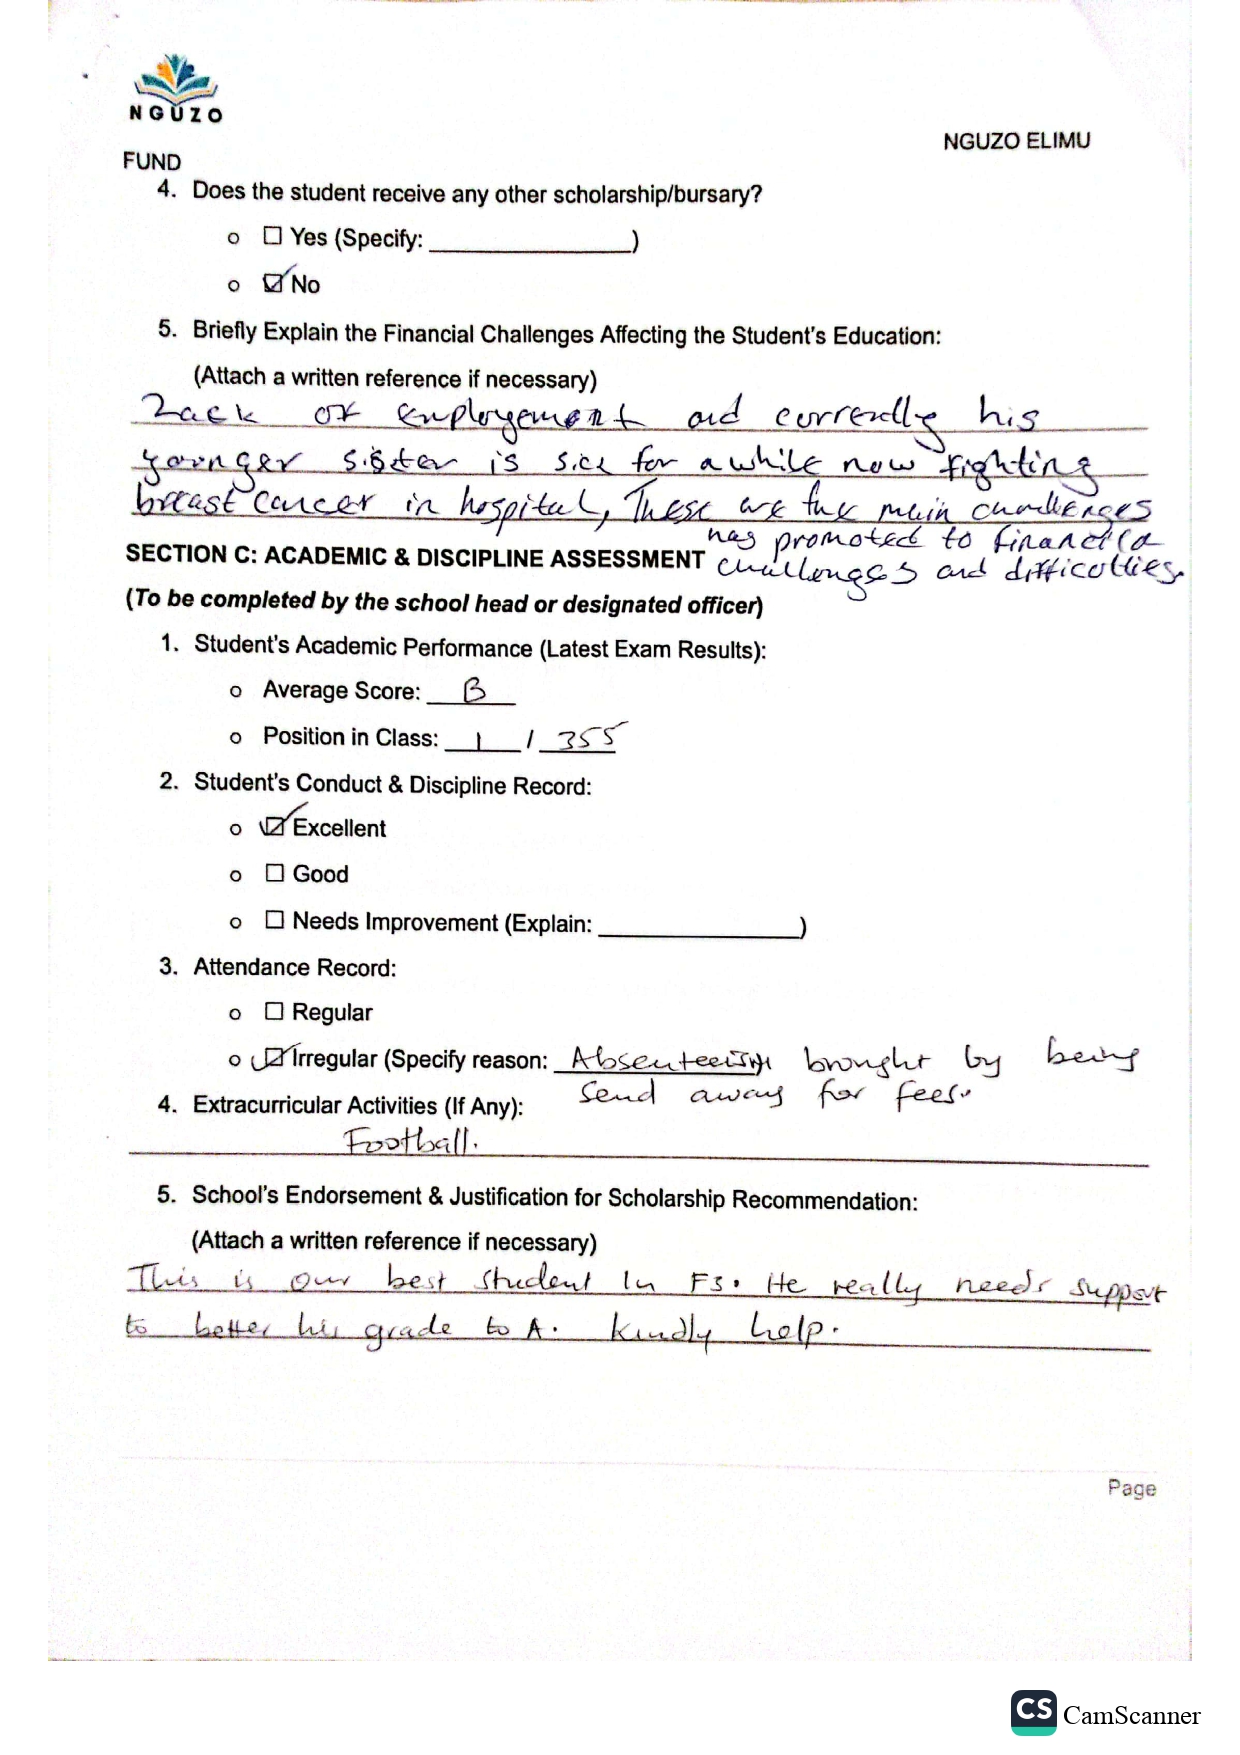 NGUZO
NGUZO ELIMU
FUND
4. Does the student receive any other scholarship/bursary?
o ☐ Yes (Specify: _______________)
o ☑ No
5. Briefly Explain the Financial Challenges Affecting the Student's Education:
(Attach a written reference if necessary)
Lack of employement and currently his
younger sister is sick for a while now fighting
breast cancer in hospital, These are the main challenges
has promoted to financia
challenges and difficulties.
SECTION C: ACADEMIC & DISCIPLINE ASSESSMENT
(To be completed by the school head or designated officer)
1. Student's Academic Performance (Latest Exam Results):
o Average Score: B
o Position in Class: 1 / 355
2. Student's Conduct & Discipline Record:
o ☑ Excellent
o ☐ Good
o ☐ Needs Improvement (Explain: _______________)
3. Attendance Record:
o ☐ Regular
o ☑ Irregular (Specify reason: Absenteeism brought by being
send away for fees.
4. Extracurricular Activities (If Any):
Football.
5. School's Endorsement & Justification for Scholarship Recommendation:
(Attach a written reference if necessary)
This is our best student In F3. He really needs support
to better his grade to A. Kindly help.
Page
CS CamScanner